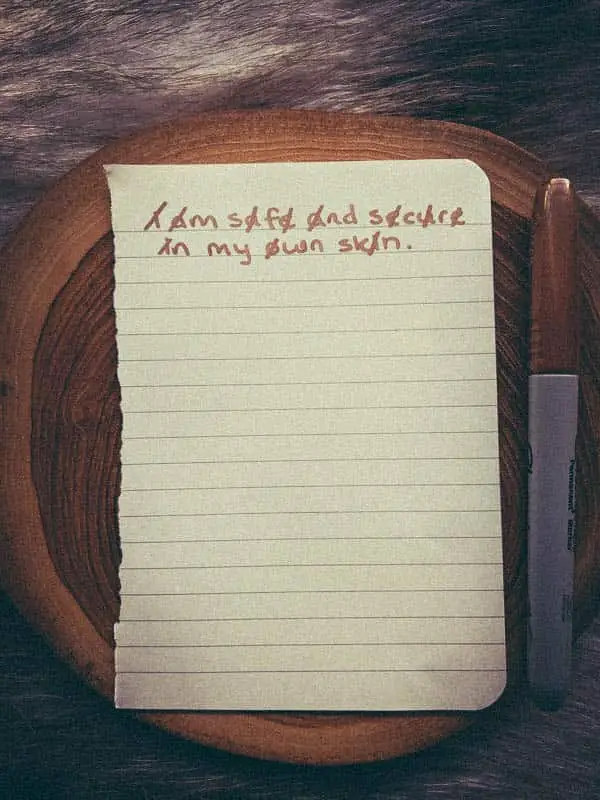 I am safe and secure
in my own skin.
Permanent Marker